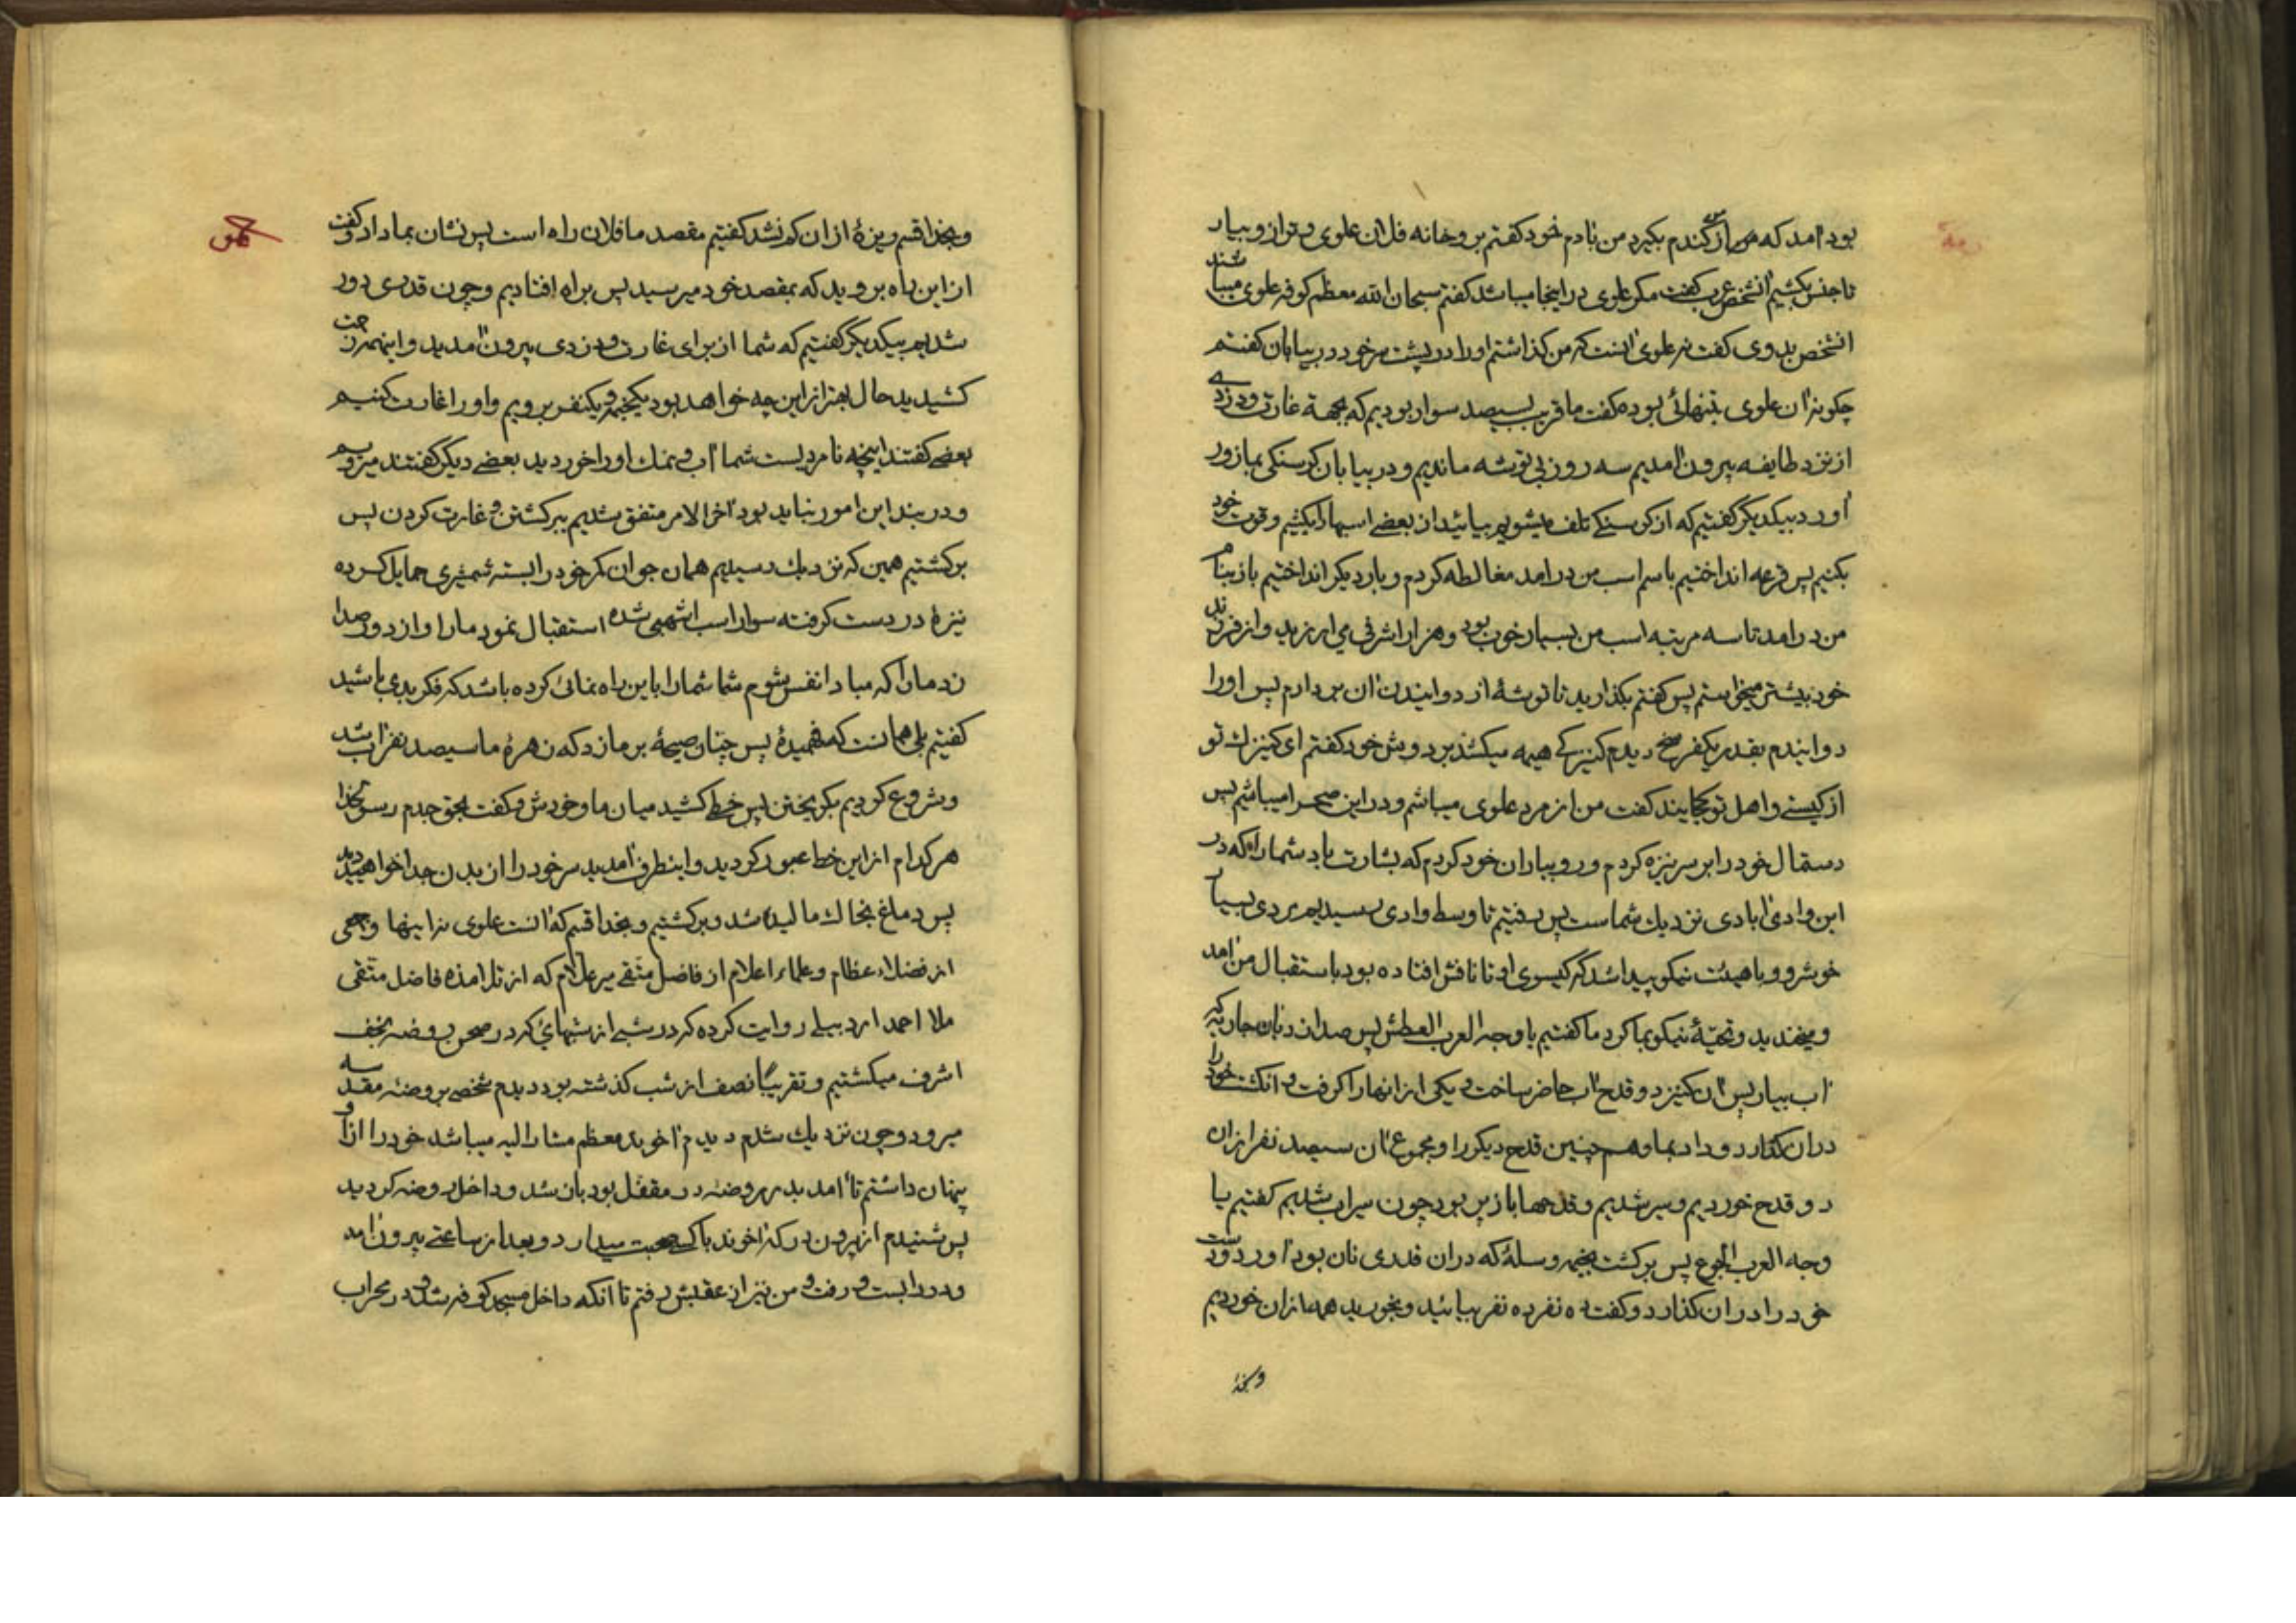 بود آمد که از من گندم بگیرد من بآدم خود گفتم برو خانه فلان علوی و ترازو بیار
تا جنس بکشیم آنشخص عرب گفت مگر علوی در اینجا میباشد گفتم سبحان الله معظم کوفه علوی میباشند
انشخص بدوی گفت نه علوی آنست که من گذاشتم او را در پشت سر خود در بیابان گفتم
چگونه آن علوی بتنهائی بوده گفت ما قریب بسیصد سوار بودیم که بجهة غارت و دزدی
از نزد طایفه بیرون آمدیم سه روز بی توشه ماندیم و در بیابان گرسنگی بما زور
آورد بیکدیگر گفتیم که از گرسنگی تلف میشویم بیائید از بعضی اسبها را بکشیم و قوت خود
بکنیم پس قرعه انداختیم باسم اسب من درآمد مغالطه کردم و بار دیگر انداختیم باز بنام
من درآمد تا سه مرتبه اسب من بسیار خوب بود و هزار اشرفی می ارزید و از فرزند
خود بیشتر میخواستم پس گفتم بگذارید تا توشهٔ از دوانیدن آن بردارم پس او را
دوانیدم بقدر یکفرسخ دیدم کنیزکی هیمه میکشد بر دوش خود گفتم ای کنیزک تو
از کیستی و اهل تو کجایند گفت من از مرد علوی میباشم و در این صحرا میباشیم پس
دستمال خود را بر سر نیزه کردم و رو بیاران خود کردم که بشارت باد شما را که در
این وادی آبادی نزدیک شماست پس رفتیم تا وسط وادی رسیدیم مردی بسیار
خوشرو و با هیئت نیکو پیدا شد که گیسوی او تا نافش افتاده بود باستقبال من آمد
و میخندید و تحیّهٔ نیکو بما کرد ما گفتیم یا وجه العرب العطش پس صدا زد بآن جاریه که
آب بیار پس آن کنیز دو قدح آب حاضر ساخت و یکی از آنها را گرفت و انگشت خود را
در آن گذارد و داد بما و هم چنین قدح دیگر را و مجموع آن سیصد نفر از آن
دو قدح خوردیم و سیر شدیم و قدحها باز پر بود چون سیراب شدیم گفتیم یا
وجه العرب الجوع پس برگشت بخیمه و سلهٔ که در آن قدری نان بود آورد و دست
خود را در آن گذارد و گفت ده نفر ده نفر بیائید و بخورید همه از آن خوردیم
و بخدا
و بخدا قسم ریزهٔ از آن کم نشد گفتیم مقصد ما فلان راه است پس نشان بما داد و گفت
از این راه بروید که بمقصد خود میرسید پس براه افتادیم و چون قدری دور
شدیم بیکدیگر گفتیم که شما از برای غارت و دزدی بیرون آمدید و اینهمه زحمت
کشیدید حال بهتر از این چه خواهد بود یکخیمه و یکنفر برویم و او را غارت کنیم
بعضی گفتند اینچه نامردیست شما آب و نمک او را خوردید بعضی دیگر گفتند میرویم
و در بند این امور نباید بود آخر الامر متفق شدیم ببرگشتن و غارت کردن پس
برگشتیم همین که نزدیک رسیدیم همان جوان کمر خود را بسته شمشیری حمایل کرده
نیزهٔ در دست گرفته سوار اسب اشهبی شده استقبال نمود ما را و از دور صدا
زد ما را که مبادا نفس شوم شما شما را باین راهنمائی کرده باشد که فکر بدی باشید
گفتیم بلی همانست که فهمیدهٔ پس چنان صیحهٔ بر ما زد که زهرهٔ ما سیصد نفر آب شد
و شروع کردیم بگریختن پس خطی کشید میان ما و خودش و گفت بحق جدم رسول خدا
هر کدام از این خط عبور کردید و اینطرف آمدید سر خود را از بدن جدا خواهید دید
پس دماغ بخاک مالیده شد و برگشتیم و بخدا قسم که آنست علوی نه اینها و جمعی
از فضلاء عظام و علماء اعلام از فاضل متقی میر علام که از تلامذه فاضل متّقی
ملا احمد اردبیلی روایت کرده که در شبی از شبهایٔ که در صحن روضه نجف
اشرف میگشتیم و تقریباً نصف از شب گذشته بود دیدم شخصی بروضه مقدسه
میرود و چون نزدیک شدم دیدم آخوند معظم مشار الیه میباشد خود را از او
پنهان داشتم تا آمد بدر روضه در مقفل بود باز شد و داخل روضه گردید
پس شنیدم از بیرون در که آخوند با کسی صحبت میدارد و بعد از ساعتی بیرون آمد
و در را بست و رفت و من نیز از عقبش رفتم تا آنکه داخل مسجد کوفه شد و در محراب